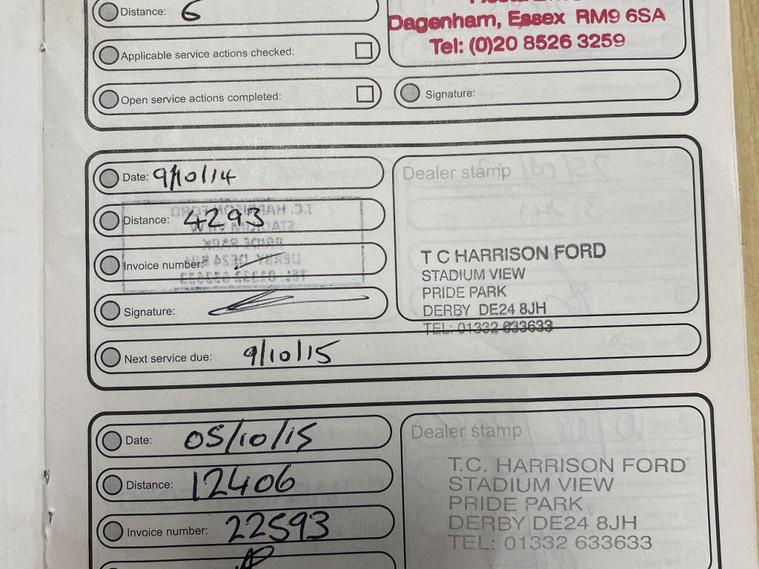 Distance: 6
Dagenham, Essex RM9 6SA
Tel: (0)20 8526 3259
Applicable service actions checked:
Open service actions completed:
Signature:
Date: 9/10/14
Dealer stamp
Distance: 4293
Invoice number:
Signature:
T C HARRISON FORD
STADIUM VIEW
PRIDE PARK
DERBY DE24 8JH
TEL: 01332 633633
Next service due: 9/10/15
Date: 05/10/15
Dealer stamp
Distance: 12406
Invoice number: 22593
T.C. HARRISON FORD
STADIUM VIEW
PRIDE PARK
DERBY DE24 8JH
TEL: 01332 633633